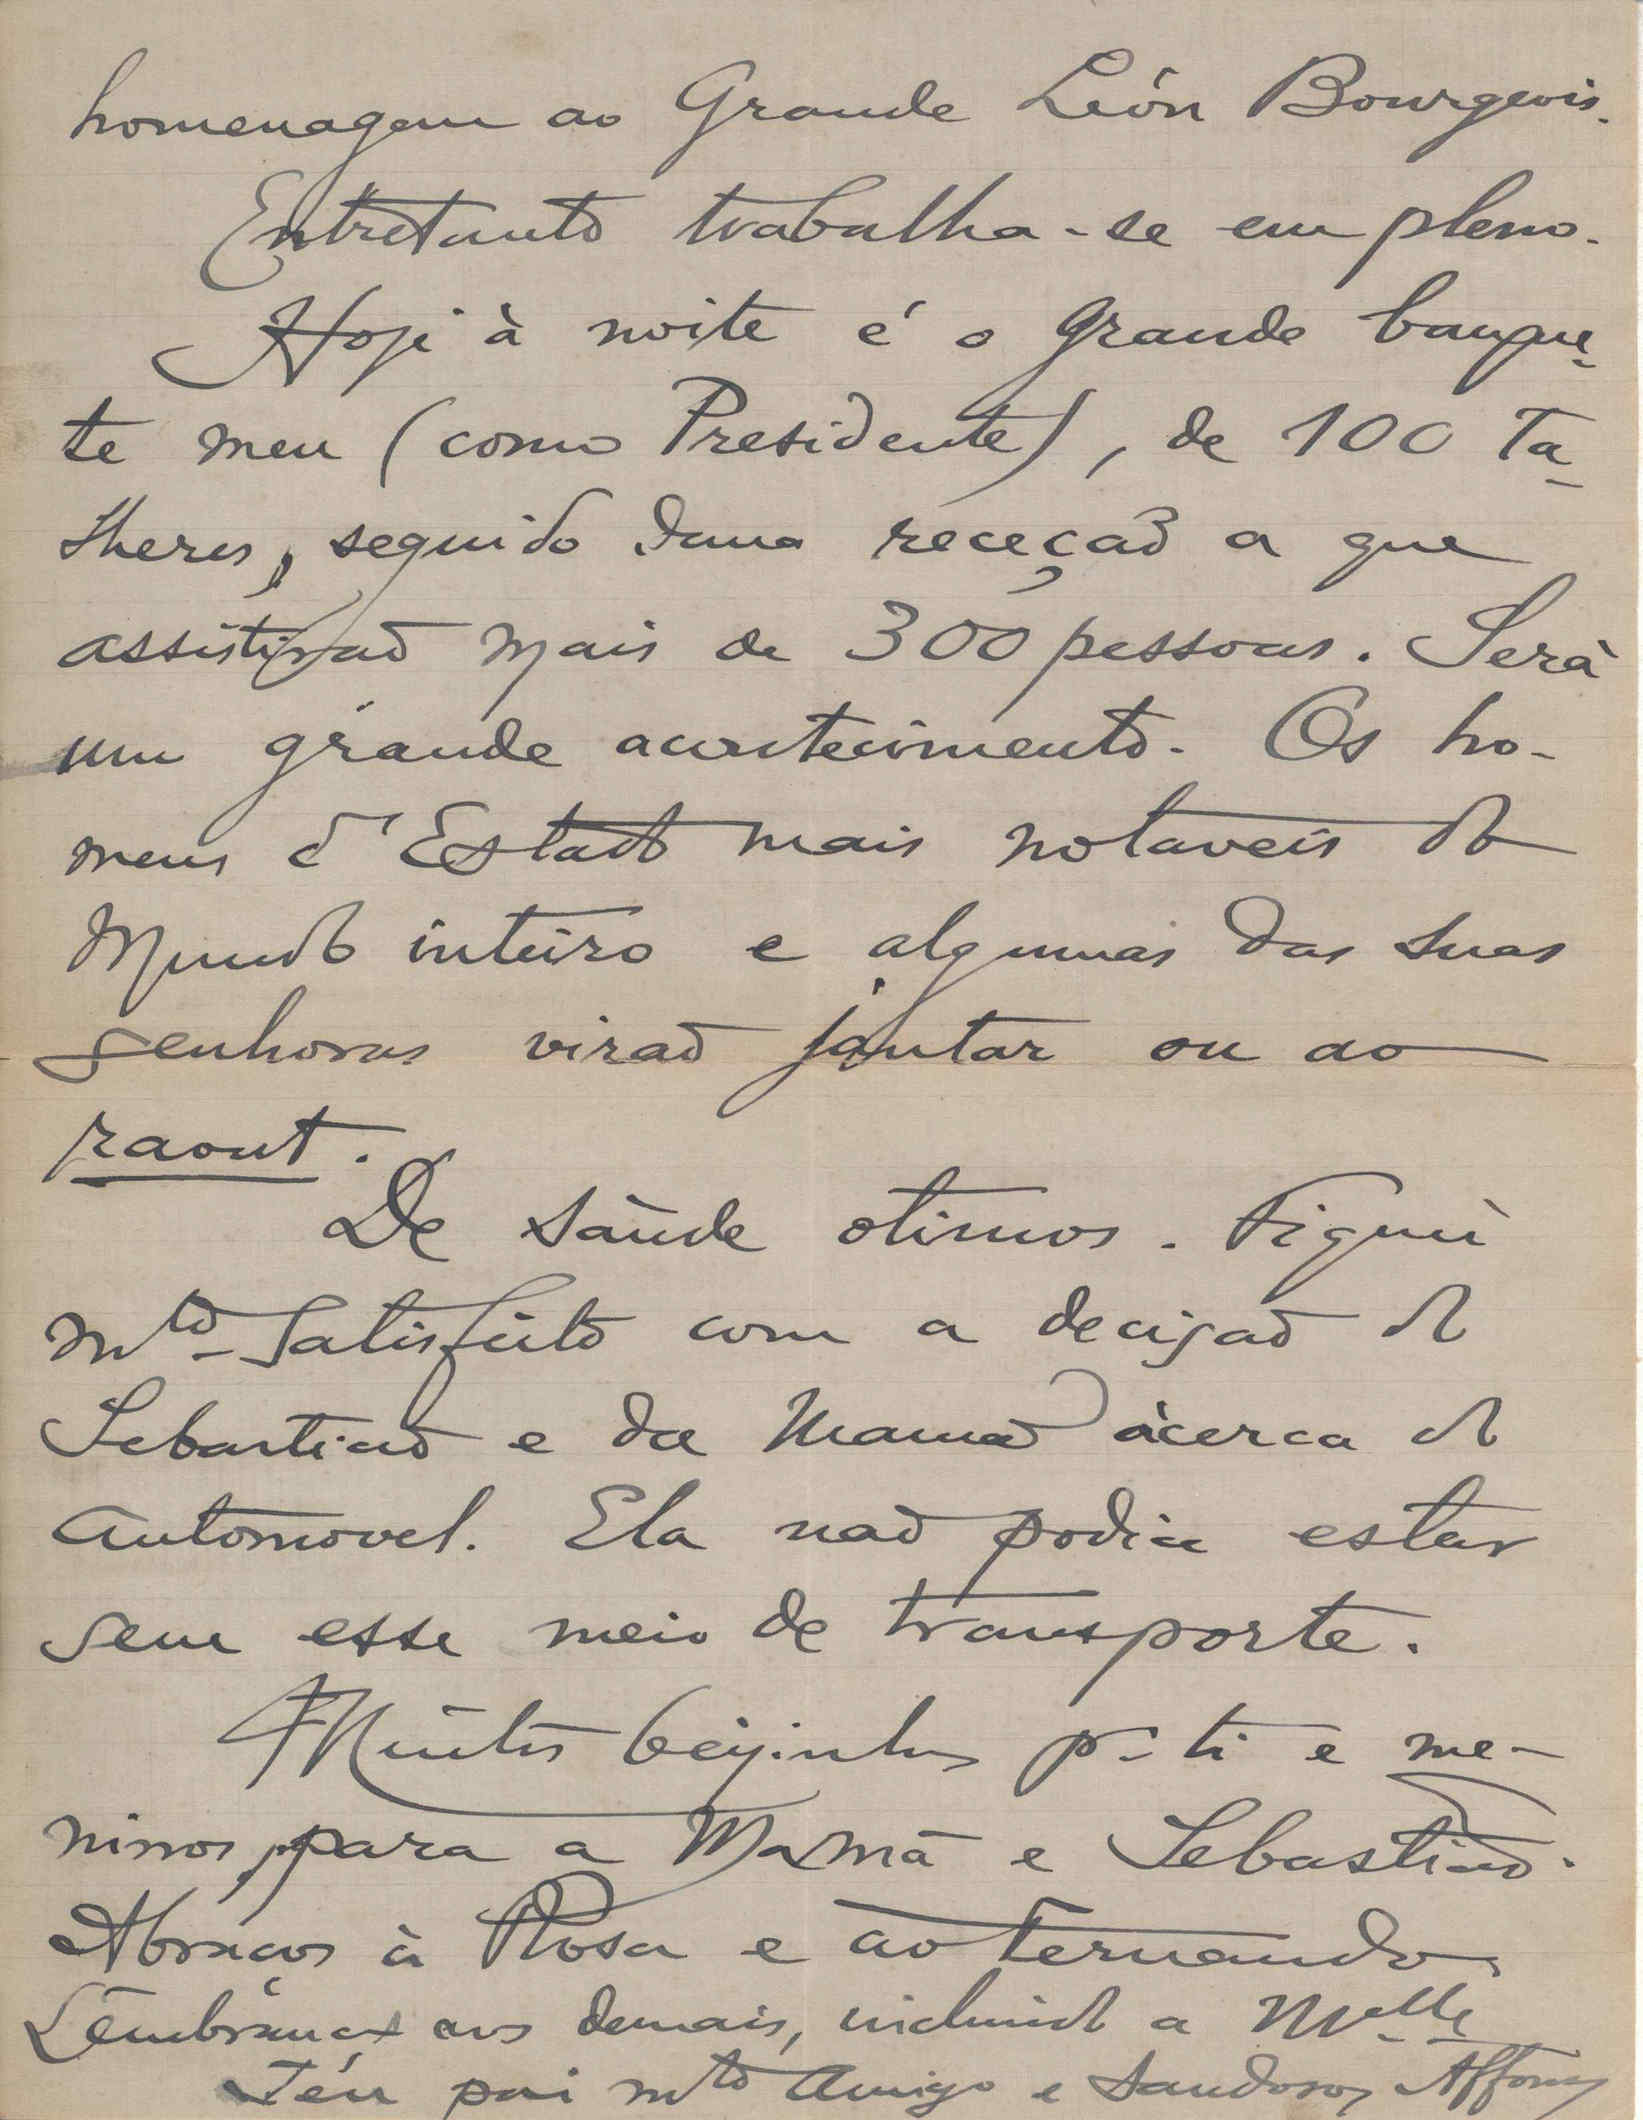 homenagem ao Grande Léon Bourgeois.
Entretanto trabalha-se em pleno.
Hoje à noite é o grande banque-
te meu (como Presidente), de 100 ta-
lheres, seguido duma receção a que
assistirão mais de 300 pessoas. Será
um grande acontecimento. Os ho-
mens d'Estado mais notaveis do
Mundo inteiro e algumas das suas
senhoras virão jantar ou ao
raout.
De saúde otimos. Fiquei
mto satisfeito com a decisão do
Sebastião e da Mamã àcerca do
automovel. Ela não podia estar
sem esse meio de transporte.
Muitos beijinhos pa ti e me-
ninos, para a Mamã e Sebastião.
Abraços à Rosa e ao Fernando
Lembranças aos demais, incluindo a Melle
Teu pai mto amigo e saudoso, Affonso